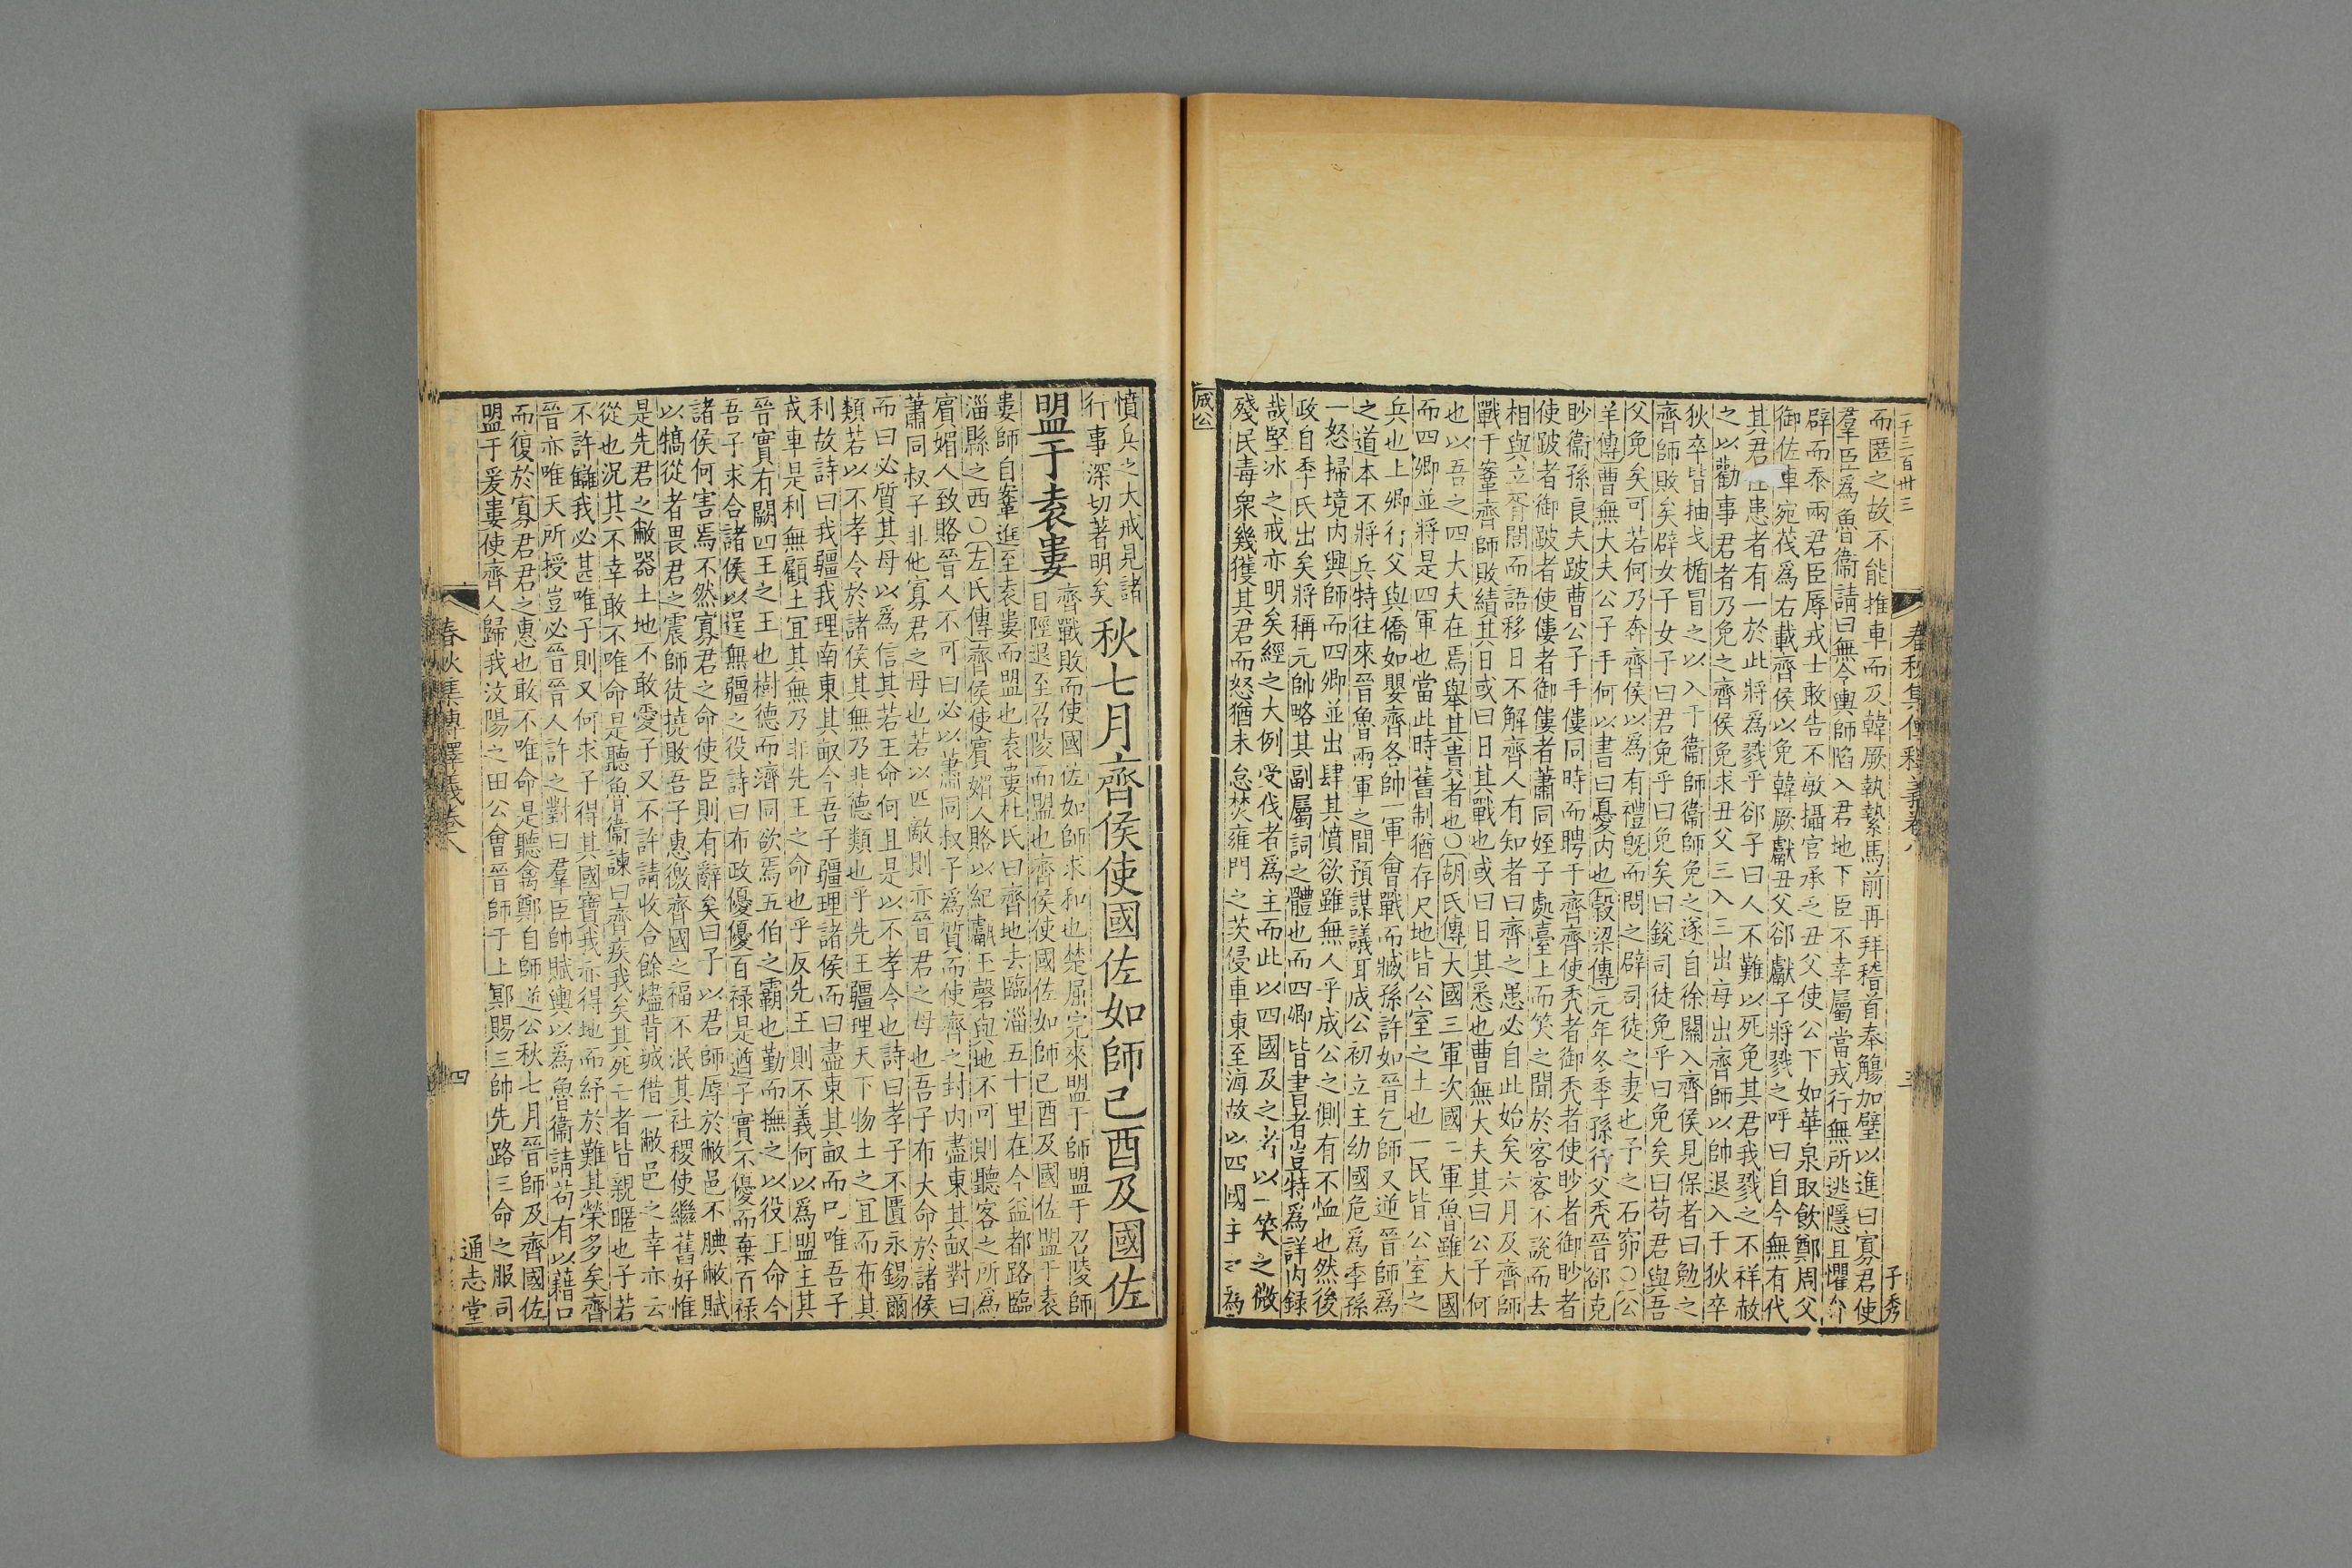 一千三百卅三
春秋集傳釋義卷八
三
子秀
而匿之故不能推車而及韓厥執縶馬前再拜稽首奉觴加璧以進曰寡君使
羣臣爲魯衞請曰無令輿師陷入君地下臣不幸屬當戎行無所逃隱且懼奔
辟而忝兩君臣辱戎士敢告不敏攝官承乏丑父使公下如華泉取飲鄭周父
御佐車宛茷爲右載齊侯以免韓厥獻丑父郤獻子將戮之呼曰自今無有代
其君任患者有一於此將爲戮乎郤子曰人不難以死免其君我戮之不祥赦
之以勸事君者乃免之齊侯免求丑父三入三出每出齊師以帥退入于狄卒
狄卒皆抽戈楯冒之以入于衞師衞師免之遂自徐關入齊侯見保者曰勉之
齊師敗矣辟女子女子曰君免乎曰免矣曰銳司徒免乎曰免矣曰苟君與吾
父免矣可若何乃奔齊侯以爲有禮旣而問之辟司徒之妻也予之石窌○公
羊傳曹無大夫公子手何以書曰憂内也穀梁傳元年冬季孫行父秃晉郤克
眇衞孫良夫跛曹公子手僂同時而聘于齊齊使秃者御秃者使眇者御眇者
使跛者御跛者使僂者御僂者蕭同姪子處臺上而笑之聞於客客不說而去
相與立胥閭而語移日不解齊人有知者曰齊之患必自此始矣六月及齊師
戰于鞌齊師敗績其日或曰日其戰也或曰日其悉也曹無大夫其曰公子何
也以吾之四大夫在焉舉其貴者也○胡氏傳大國三軍次國二軍魯雖大國
而四卿並將是四軍也當此時舊制猶存尺地皆公室之土也一民皆公室之
兵也上卿行父與僑如嬰齊各帥一軍會戰而臧孫許如晉乞師又逆晉師爲
之道本不將兵特往來晉魯兩軍之間預謀議耳成公初立主幼國危爲季孫
一怒掃境内興師而四卿並出肆其憤欲雖無人乎成公之側有不恤也然後
政自季氏出矣將稱元帥略其副屬詞之體也而四卿皆書者豈特爲詳内録
哉堅冰之戒亦明矣經之大例受伐者爲主而此以四國及之者以一笑之微
殘民毒衆幾獲其君而怒猶未怠焚雍門之茨侵車東至海故以四國主之爲
成公
憤兵之大戒見諸行事深切著明矣
秋七月齊侯使國佐如師己酉及國佐
盟于袁婁
齊戰敗而使國佐如師求和也楚屈完來盟于師盟于召陵師
目陘退至召陵而盟也齊侯使國佐如師己酉及國佐盟于袁
婁師自鞌進至袁婁而盟也袁婁杜氏曰齊地去臨淄五十里在今益都路臨
淄縣之西○左氏傳齊侯使賓媚人賂以紀甗玉磬與地不可則聽客之所爲
賓媚人致賂晉人不可曰必以蕭同叔子爲質而使齊之封内盡東其畝對曰
蕭同叔子非他寡君之母也若以匹敵則亦晉君之母也吾子布大命於諸侯
而曰必質其母以爲信其若王命何且是以不孝令也詩曰孝子不匱永錫爾
類若以不孝令於諸侯其無乃非德類也乎先王疆理天下物土之宜而布其
利故詩曰我疆我理南東其畝今吾子疆理諸侯而曰盡東其畝而已唯吾子
戎車是利無顧土宜其無乃非先王之命也乎反先王則不義何以爲盟主其
晉實有闕四王之王也樹德而濟同欲焉五伯之霸也勤而撫之以役王命今
吾子求合諸侯以逞無疆之役詩曰布政優優百禄是遒子實不優而棄百禄
諸侯何害焉不然寡君之命使臣則有辭矣曰子以君師辱於敝邑不腆敝賦
以犒從者畏君之震師徒撓敗吾子惠徼齊國之福不泯其社稷使繼舊好惟
是先君之敝器土地不敢愛子又不許請收合餘燼背城借一敝邑之幸亦云
從也況其不幸敢不唯命是聽魯衞諫曰齊疾我矣其死亡者皆親暱也子若
不許讎我必甚唯子則又何求子得其國寶我亦得地而紓於難其榮多矣齊
晉亦唯天所授豈必晉晉人許之對曰羣臣帥賦輿以爲魯衞請苟有以藉口
而復於寡君君之惠也敢不唯命是聽禽鄭自師逆公秋七月晉師及齊國佐
盟于爰婁使齊人歸我汶陽之田公會晉師于上鄍賜三帥先路三命之服司
春秋集傳釋義卷八
四
通志堂